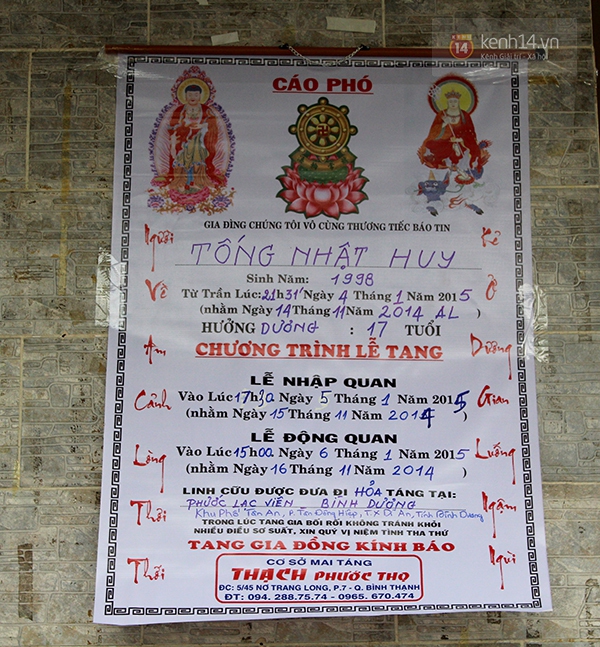 kenh14.vn
Kênh Giải trí - Xã hội
CÁO PHÓ
GIA ĐÌNG CHÚNG TÔI VÔ CÙNG THƯƠNG TIẾC BÁO TIN
TỐNG NHẬT HUY
Sinh Năm: 1998
Từ Trần Lúc: 21h31' Ngày 4 Tháng 1 Năm 2015
(nhằm Ngày 14 Tháng 11 Năm 2014 AL )
HƯỞNG DƯƠNG : 17 TUỔI
CHƯƠNG TRÌNH LỄ TANG
LỄ NHẬP QUAN
Vào Lúc 17h30 Ngày 5 Tháng 1 Năm 2015
(nhằm Ngày 15 Tháng 11 Năm 2014 )
LỄ ĐỘNG QUAN
Vào Lúc 15h00 Ngày 6 Tháng 1 Năm 2015
(nhằm Ngày 16 Tháng 11 Năm 2014 )
LINH CỮU ĐƯỢC ĐƯA ĐI HỎA TÁNG TẠI:
PHƯỚC LẠC VIÊN - BÌNH DƯƠNG
Khu Phố Tân An, P. Tân Đông Hiệp, T.X Dĩ An, Tỉnh Bình Dương
TRONG LÚC TANG GIA BỐI RỐI KHÔNG TRÁNH KHỎI
NHIỀU ĐIỀU SƠ SUẤT, XIN QUÝ VỊ NIỆM TÌNH THA THỨ
TANG GIA ĐỒNG KÍNH BÁO
CƠ SỞ MAI TÁNG
THẠCH PHƯỚC THỌ
ĐC: 5/45 NƠ TRANG LONG, P.7 - Q. BÌNH THẠNH
ĐT: 094. 288.75.74 - 0965. 670.474
Người
Về
Âm
Cảnh
Lòng
Thổi
Thổi
Kẻ
Ở
Dương
Gian
Luống
Ngậm
Ngùi